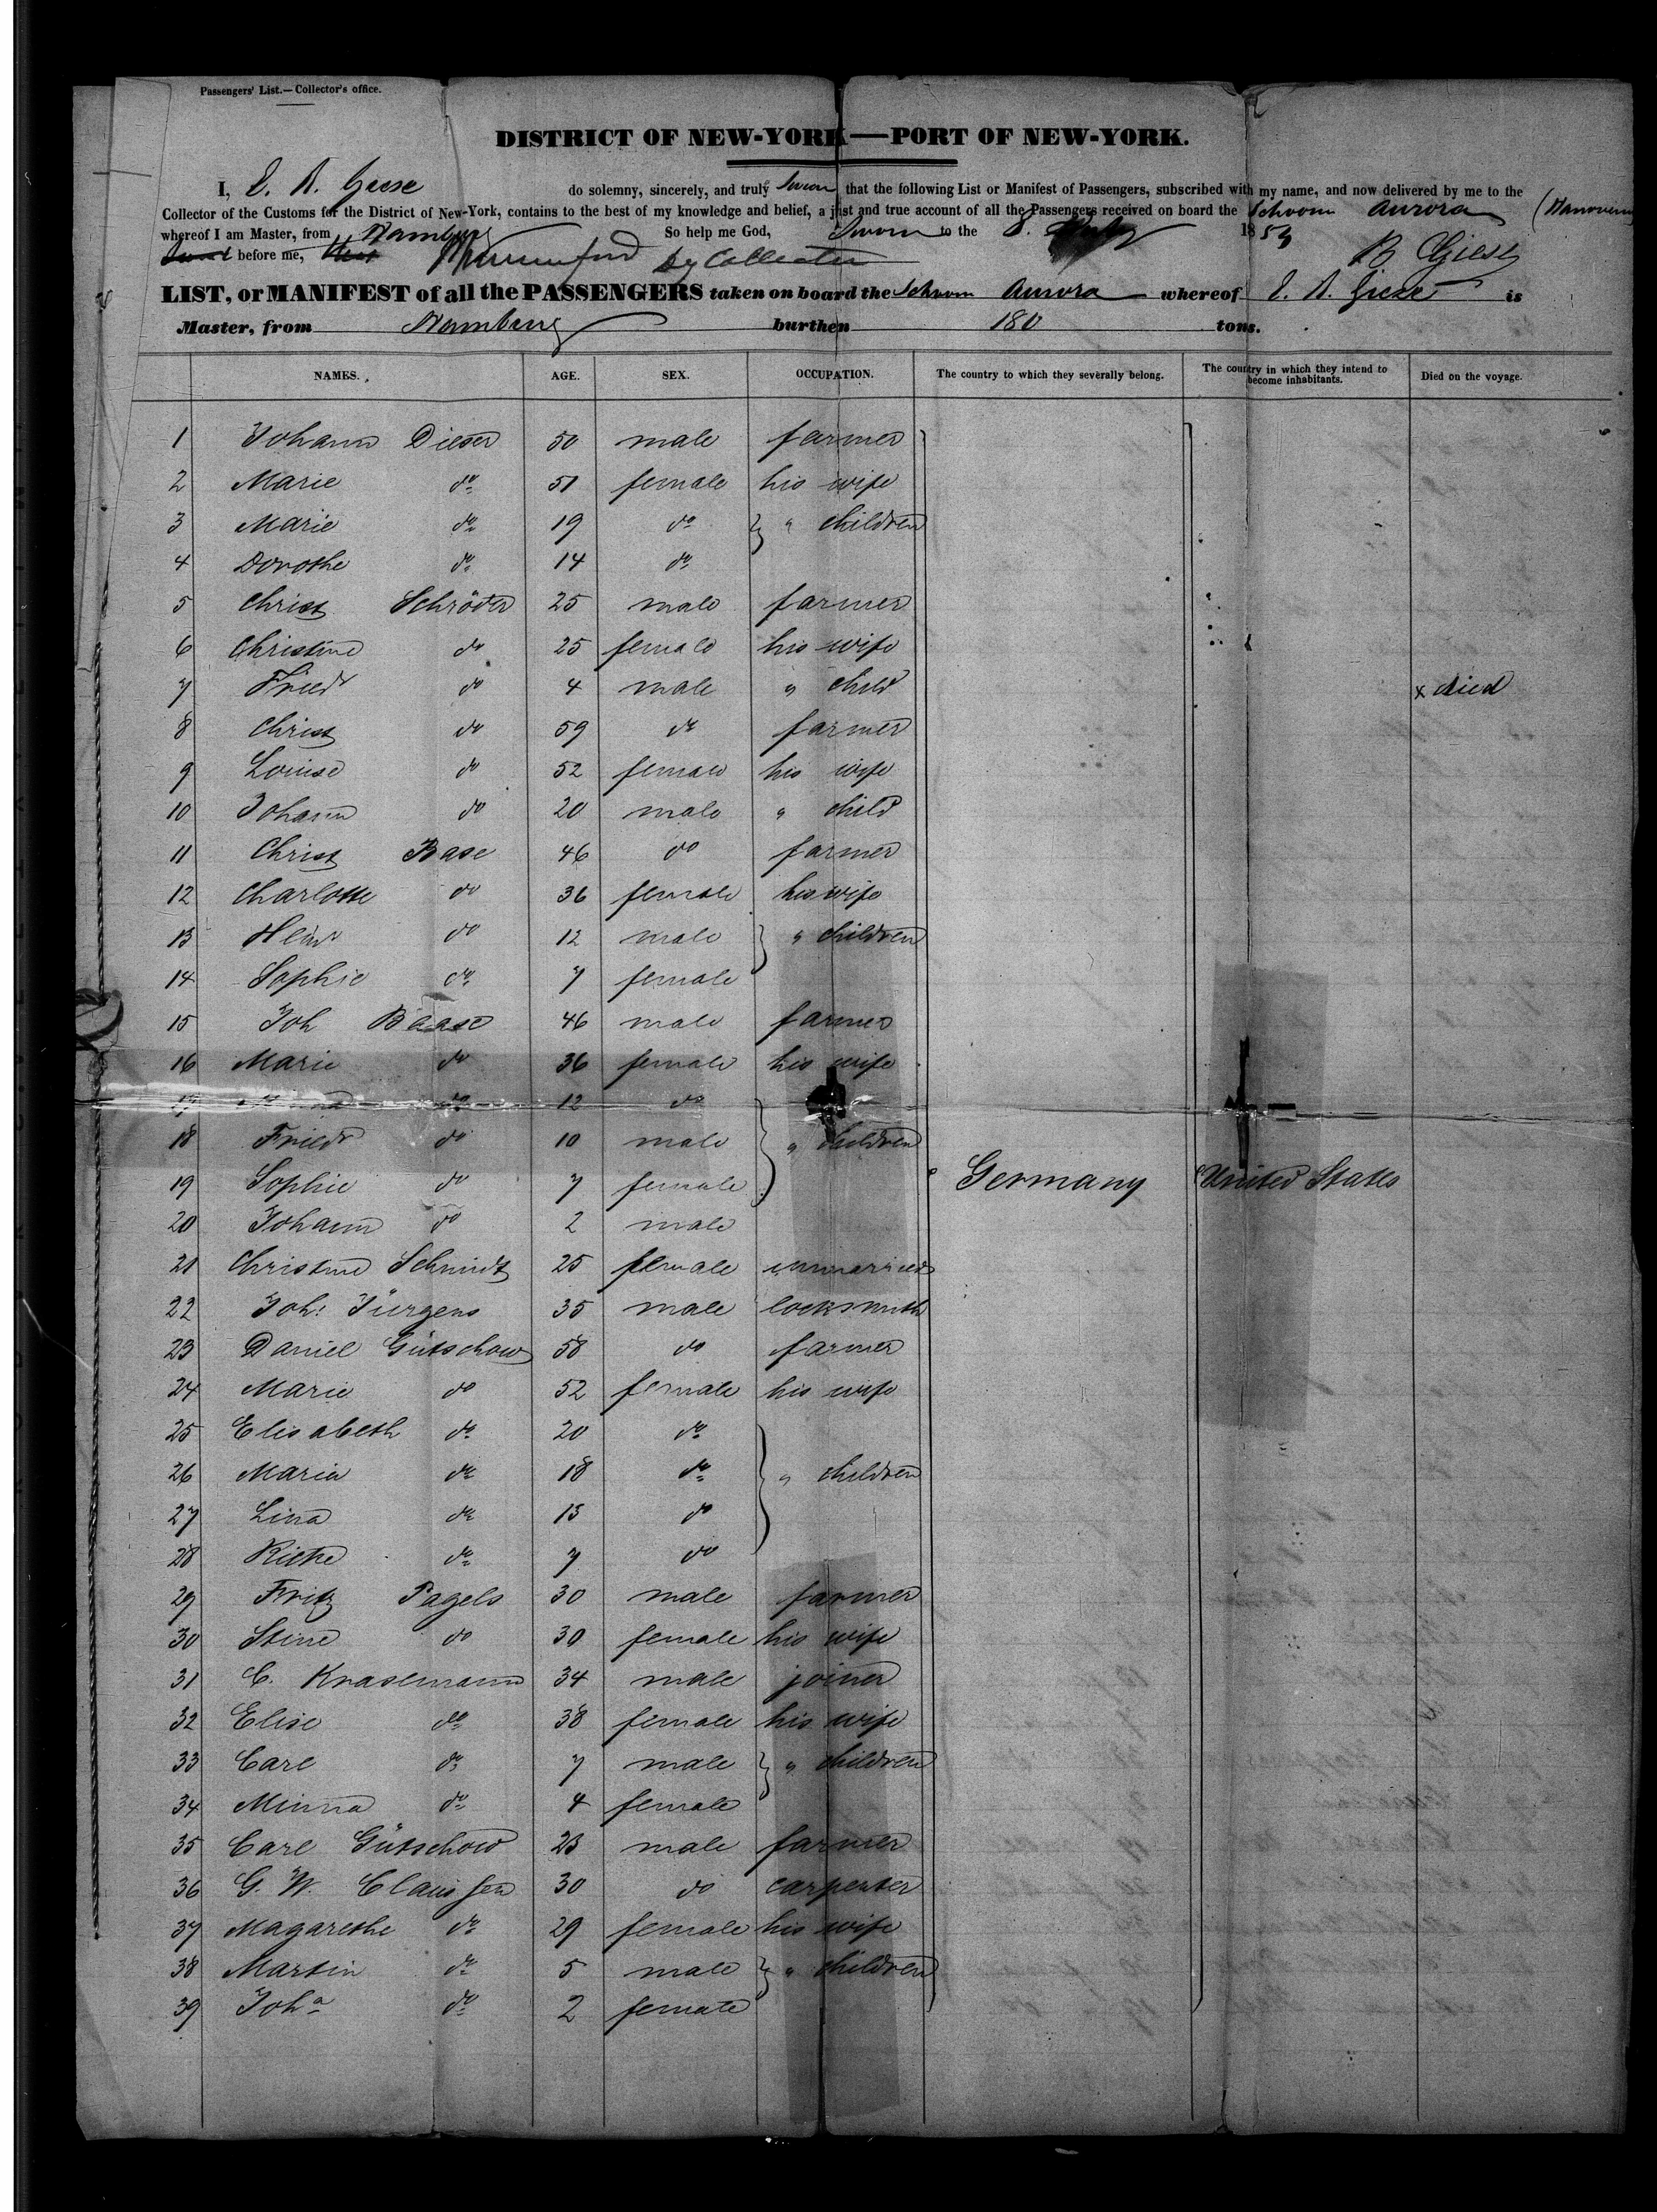 Passengers' List.—Collector's office.
DISTRICT OF NEW-YORK—PORT OF NEW-YORK.
I, E. R. Giese do solemny, sincerely, and truly Swear that the following List or Manifest of Passengers, subscribed with my name, and now delivered by me to the
Collector of the Customs for the District of New-York, contains to the best of my knowledge and belief, a just and true account of all the Passengers received on board the Schoon Aurora (Hanoveru
whereof I am Master, from Hamburg So help me God, Sworn to the 8. 185
before me, Dy Collector R Giese
LIST, or MANIFEST of all the PASSENGERS taken on board the Schoon Aurora whereof E. R. Giese is
Master, from Hamburg burthen 180 tons.
NAMES. AGE. SEX. OCCUPATION. The country to which they severally belong. The country in which they intend to become inhabitants. Died on the voyage.
1 Johann Dieser 50 male farmer
2 Marie do 51 female his wife
3 Marie do 19 do " children
4 Dorothe do 14 do
5 Christ Schröder 25 male farmer
6 Christine do 25 female his wife
7 Friedr do 4 male " child x died
8 Christ do 59 do farmer
9 Louise do 52 female his wife
10 Johann do 20 male " child
11 Christ Base 46 do farmer
12 Charlotte do 36 female his wife
13 Heinr do 12 male " children
14 Sophie do 7 female
15 Joh Baase 46 male farmer
16 Marie do 36 female his wife
17 do 12 do
18 Friedr do 10 male " children
19 Sophie do 7 female Germany United States
20 Johann do 2 male
21 Christine Schmidt 25 female unmarried
22 Joh: Jürgens 35 male locksmith
23 Daniel Gütschow 58 do farmer
24 Marie do 52 female his wife
25 Elisabeth do 20 do
26 Maria do 18 do " children
27 Lina do 13 do
28 Rieke do 7 do
29 Fritz Pagels 30 male farmer
30 Stine do 30 female his wife
31 C. Krasemann 34 male joiner
32 Elise do 38 female his wife
33 Carl do 7 male " children
34 Minna do 4 female
35 Carl Gütschow 23 male farmer
36 G. W. Claussen 30 do carpenter
37 Magarethe do 29 female his wife
38 Martin do 5 male " children
39 Joha do 2 female